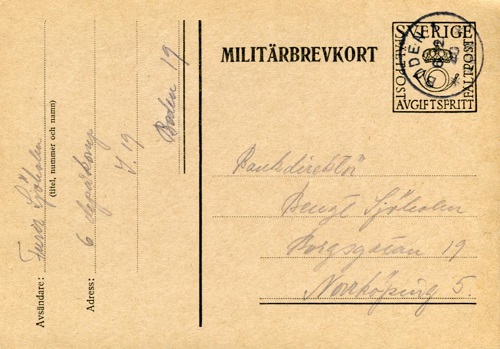 MILITÄRBREVKORT
SVERIGE
FÄLTPOST
FÄLTPOST
AVGIFTSFRITT
BODEN 1
Bankdirektör
Bengt Sjöholm
Borgsgatan 19
Norrköping 5.
Avsändare: Sjöholm
(titel, nummer och namn)
Adress: 6
I. 19
Boden 19